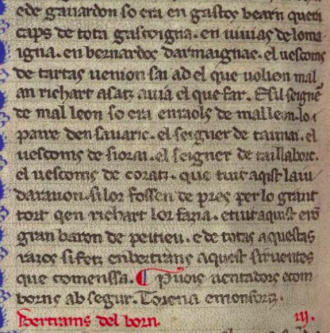 ede gauardon so era en gastos bearn quera
caps de tota gascoigna. en uiuias de loma
igna. en bernardos darmaignac. el uescoms
de tartas uenion sai ad el que uolion mal.
an richart asatz auia el que far. Esil seigner
de mal leon so era en raols de malleon lo
paire den sauaric. el seigner de taunai. el
uescoms de siorai. el seigner de taillaborc.
el uescoms de que tuit aqist laiu
darauon. si lor fossen de pres per lo grant
tort qen richart lor faria. e tuit aquist eron
gran baron de peitieu. e de totas aqestas
razos si fetz en bertrans aquest siruentes
que comenssa. Puois uentadorn e com
borns ab segur. Torena e mon
Bertrams del born. III.